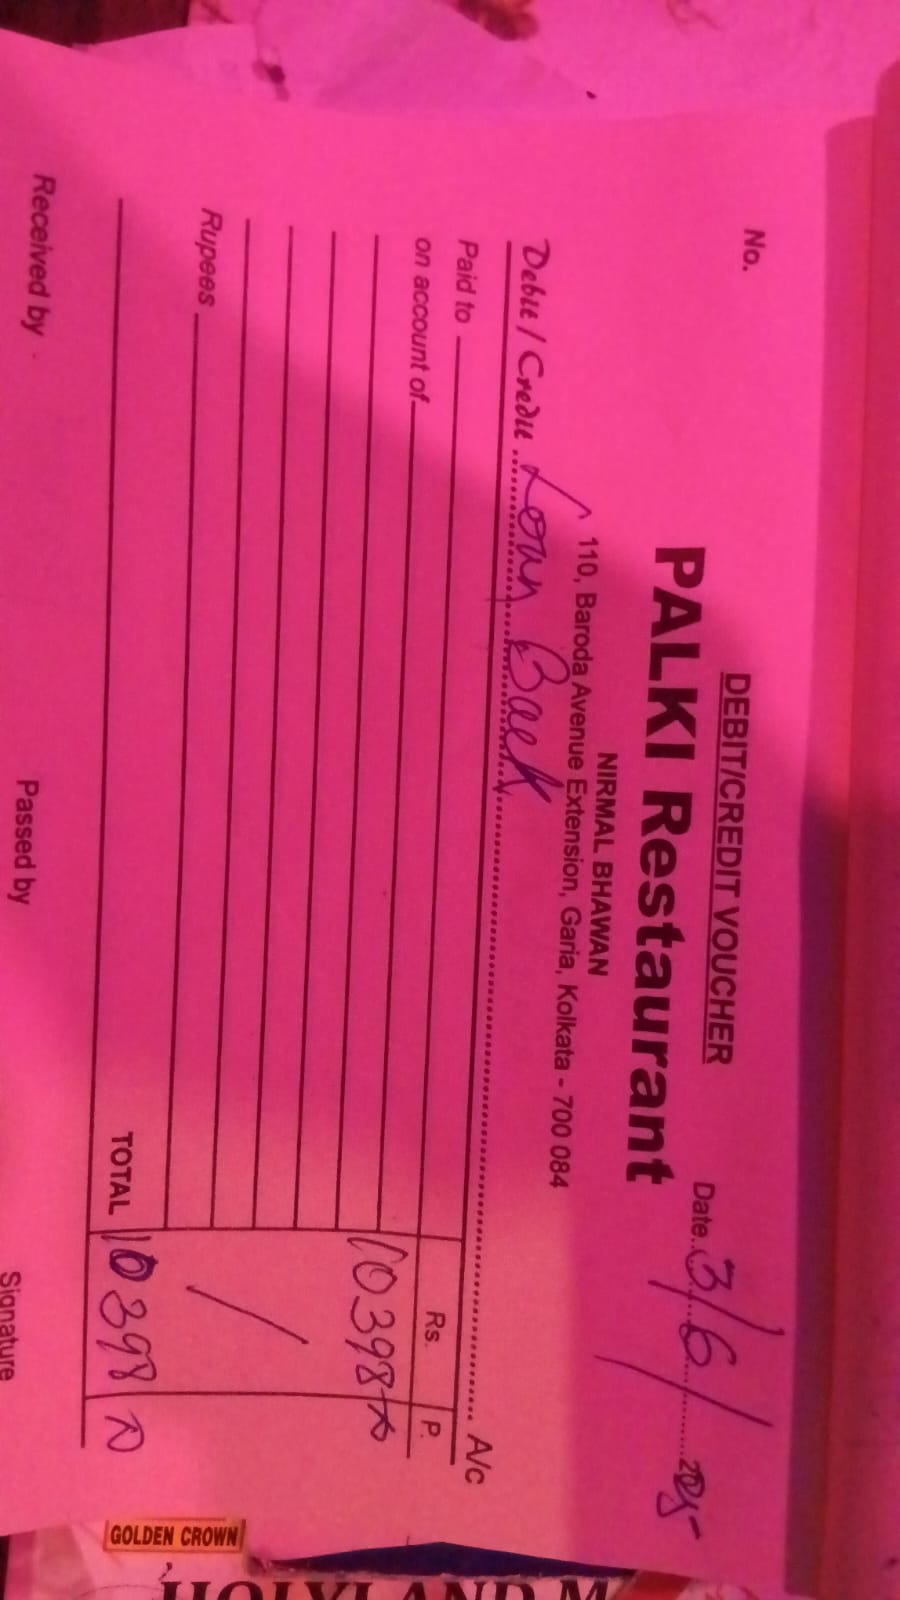 DEBIT/CREDIT VOUCHER
No.
Date 3/6/2025
PALKI Restaurant
NIRMAL BHAWAN
110, Baroda Avenue Extension, Garia, Kolkata - 700 084
Debit / Credit Loan Back A/c
Paid to Rs. P.
on account of
10398
Rupees
TOTAL 10398
Received by Passed by Signature
GOLDEN CROWN
HOLYLAND M